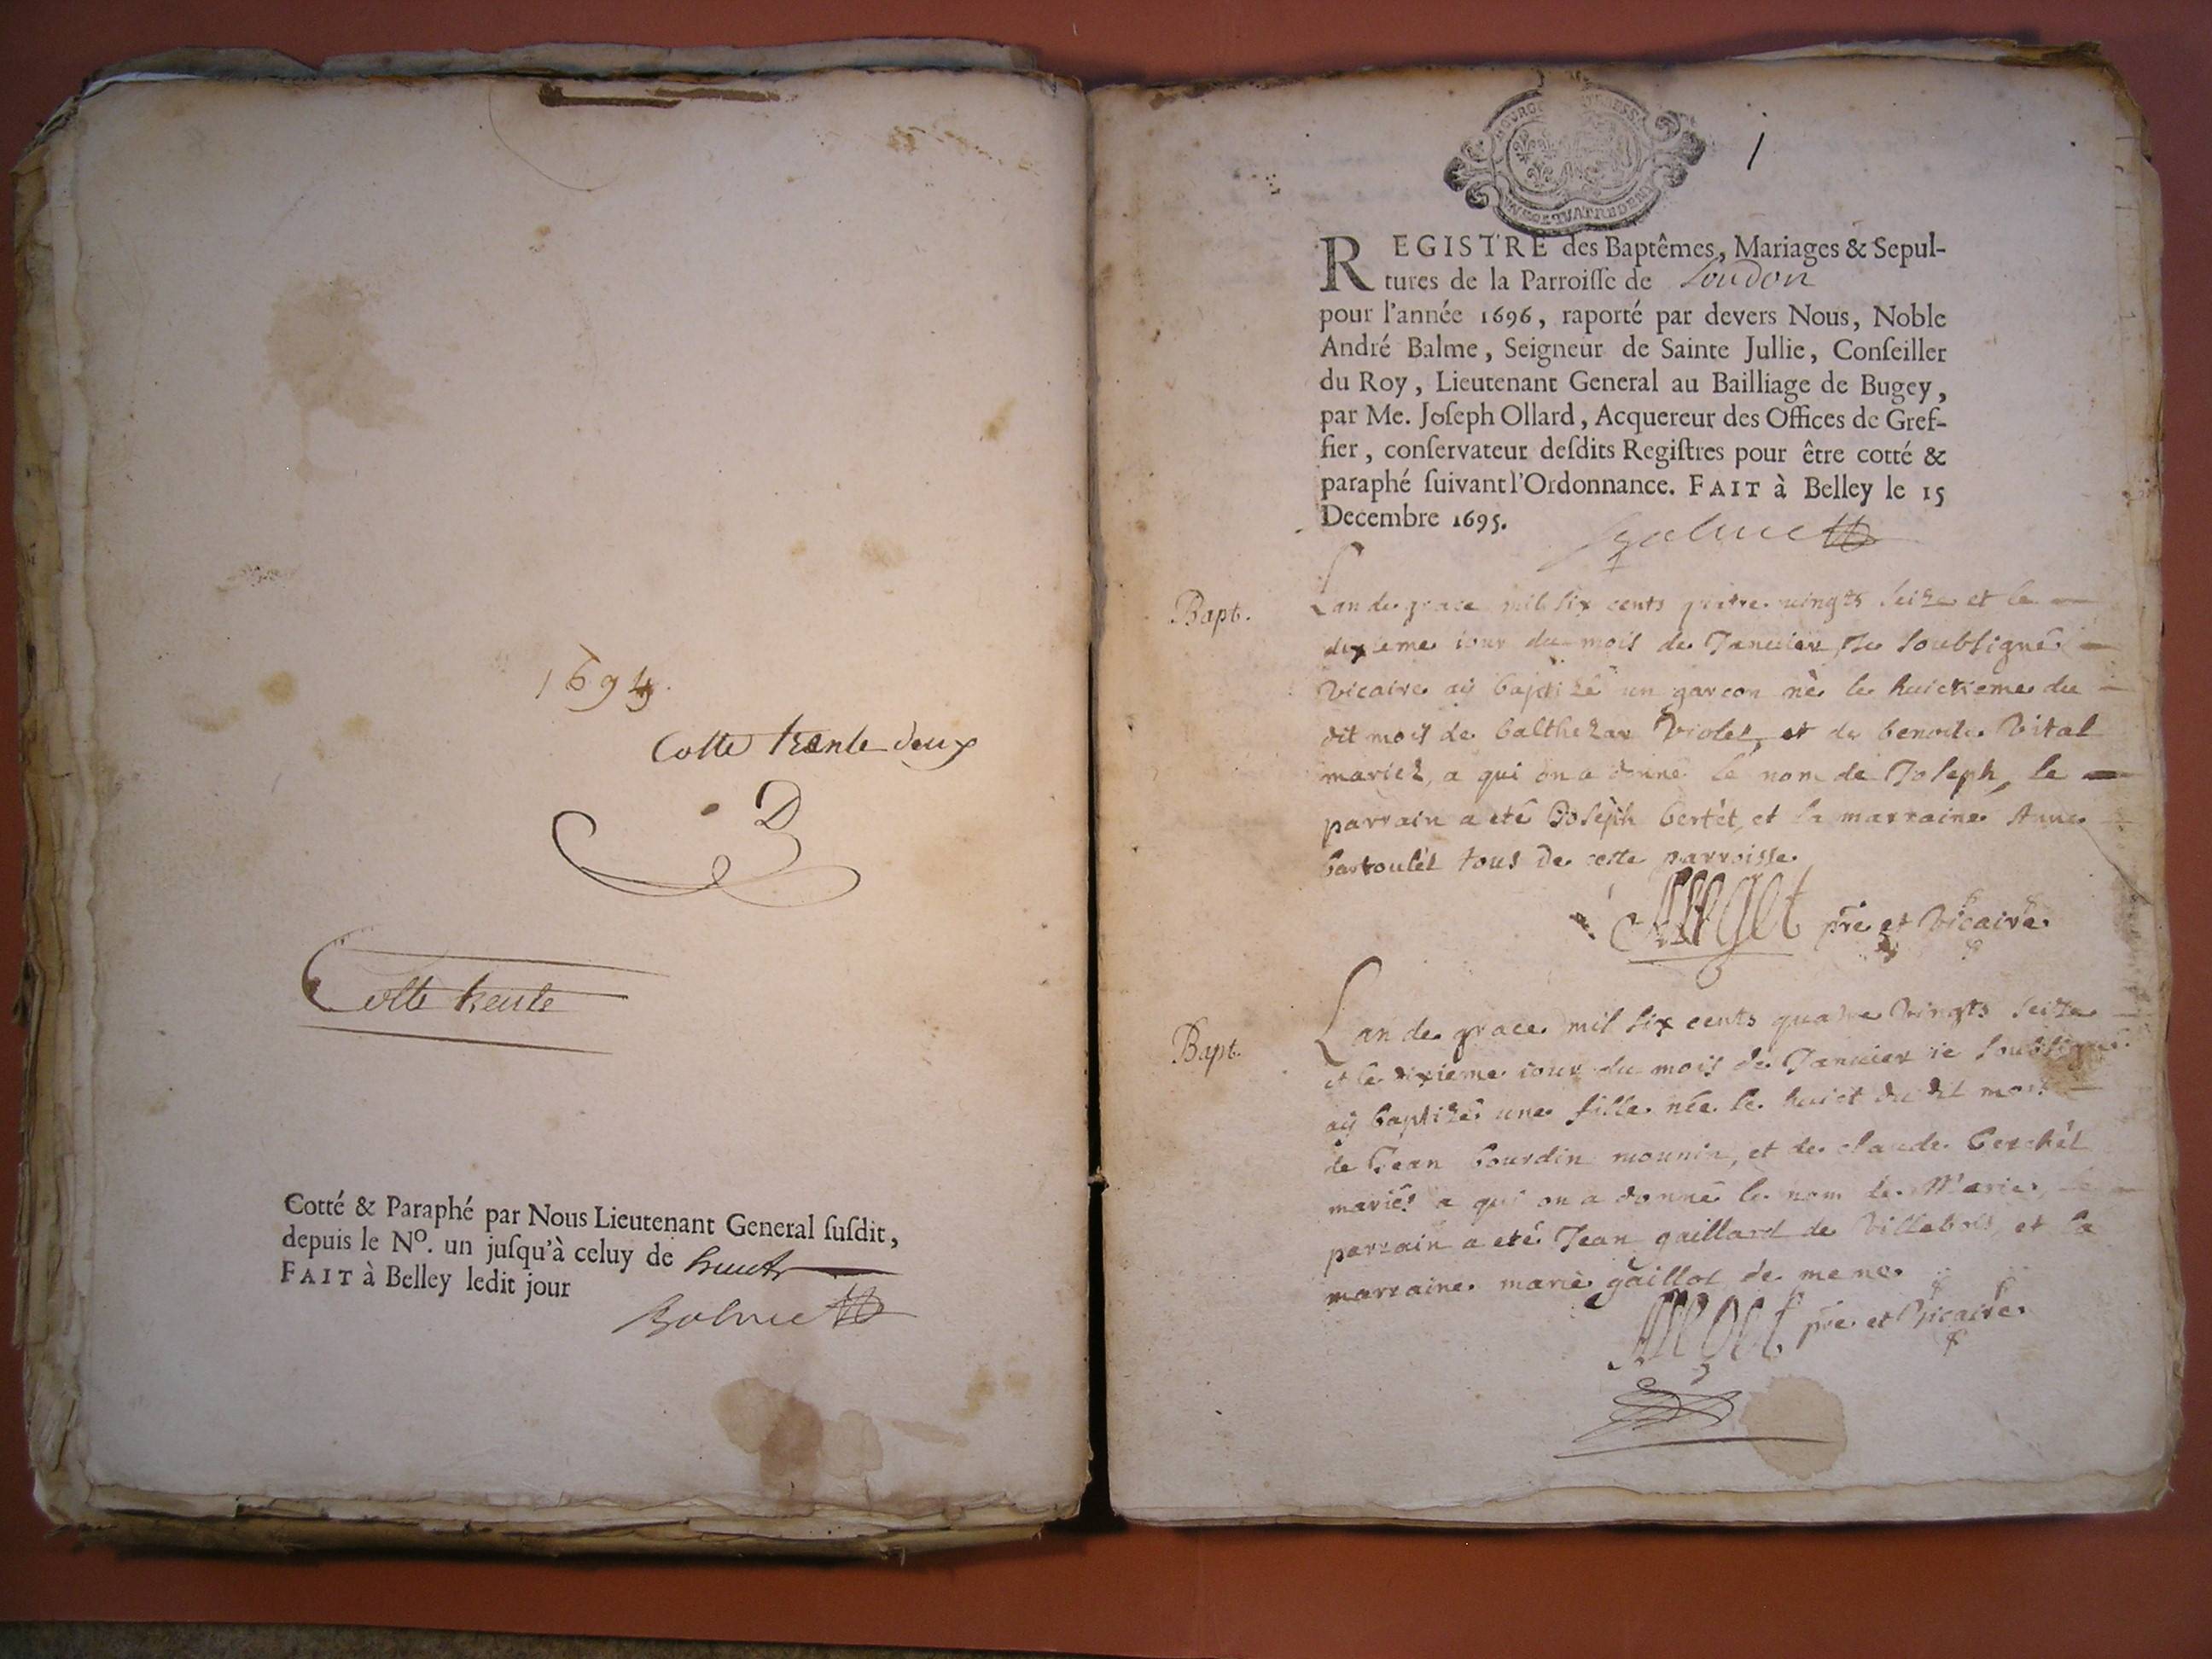 1694
Cotte trente deux
Cotte trente
Cotté & Paraphé par Nous Lieutenant General ſuſdit,
depuis le Nº. un juſqu'à celuy de
FAIT à Belley ledit jour
Balme
REGISTRE des Baptêmes, Mariages & Sepul-
tures de la Parroiſſe de Loudon
pour l'année 1696, raporté par devers Nous, Noble
André Balme, Seigneur de Sainte Jullie, Conſeiller
du Roy, Lieutenant General au Bailliage de Bugey,
par Me. Joſeph Ollard, Acquereur des Offices de Gref-
fier, conſervateur deſdits Regiſtres pour être cotté &
paraphé ſuivant l'Ordonnance. FAIT à Belley le 15
Decembre 1695.
Balme
Bapt.
Lan de grace mil six cents quatre vingts seize et le
dixieme iour du mois de Januier Je soubsigné
Vicaire aÿ baptizé un garcon né le huictieme du
dit mois de balthezar Violet, et de benoite Vital
mariez, a qui on a donné le nom de Joseph, le
parrain a eté Joseph bertet, et la marraine Anne
bartoulet tous de cette parroisse
pre et Vicaire
Bapt.
Lan de grace mil six cents quatre vingts seize
et le dixieme iour du mois de Januier ie soubsigné
aÿ baptizé une fille née le huict du dit mois
de Jean bourdin mounin, et de claude berchet
mariés a qui on a donné le nom de Marie, le
parrain a eté Jean gaillard de et la
marraine marie gaillot de mene
pre et Vicaire